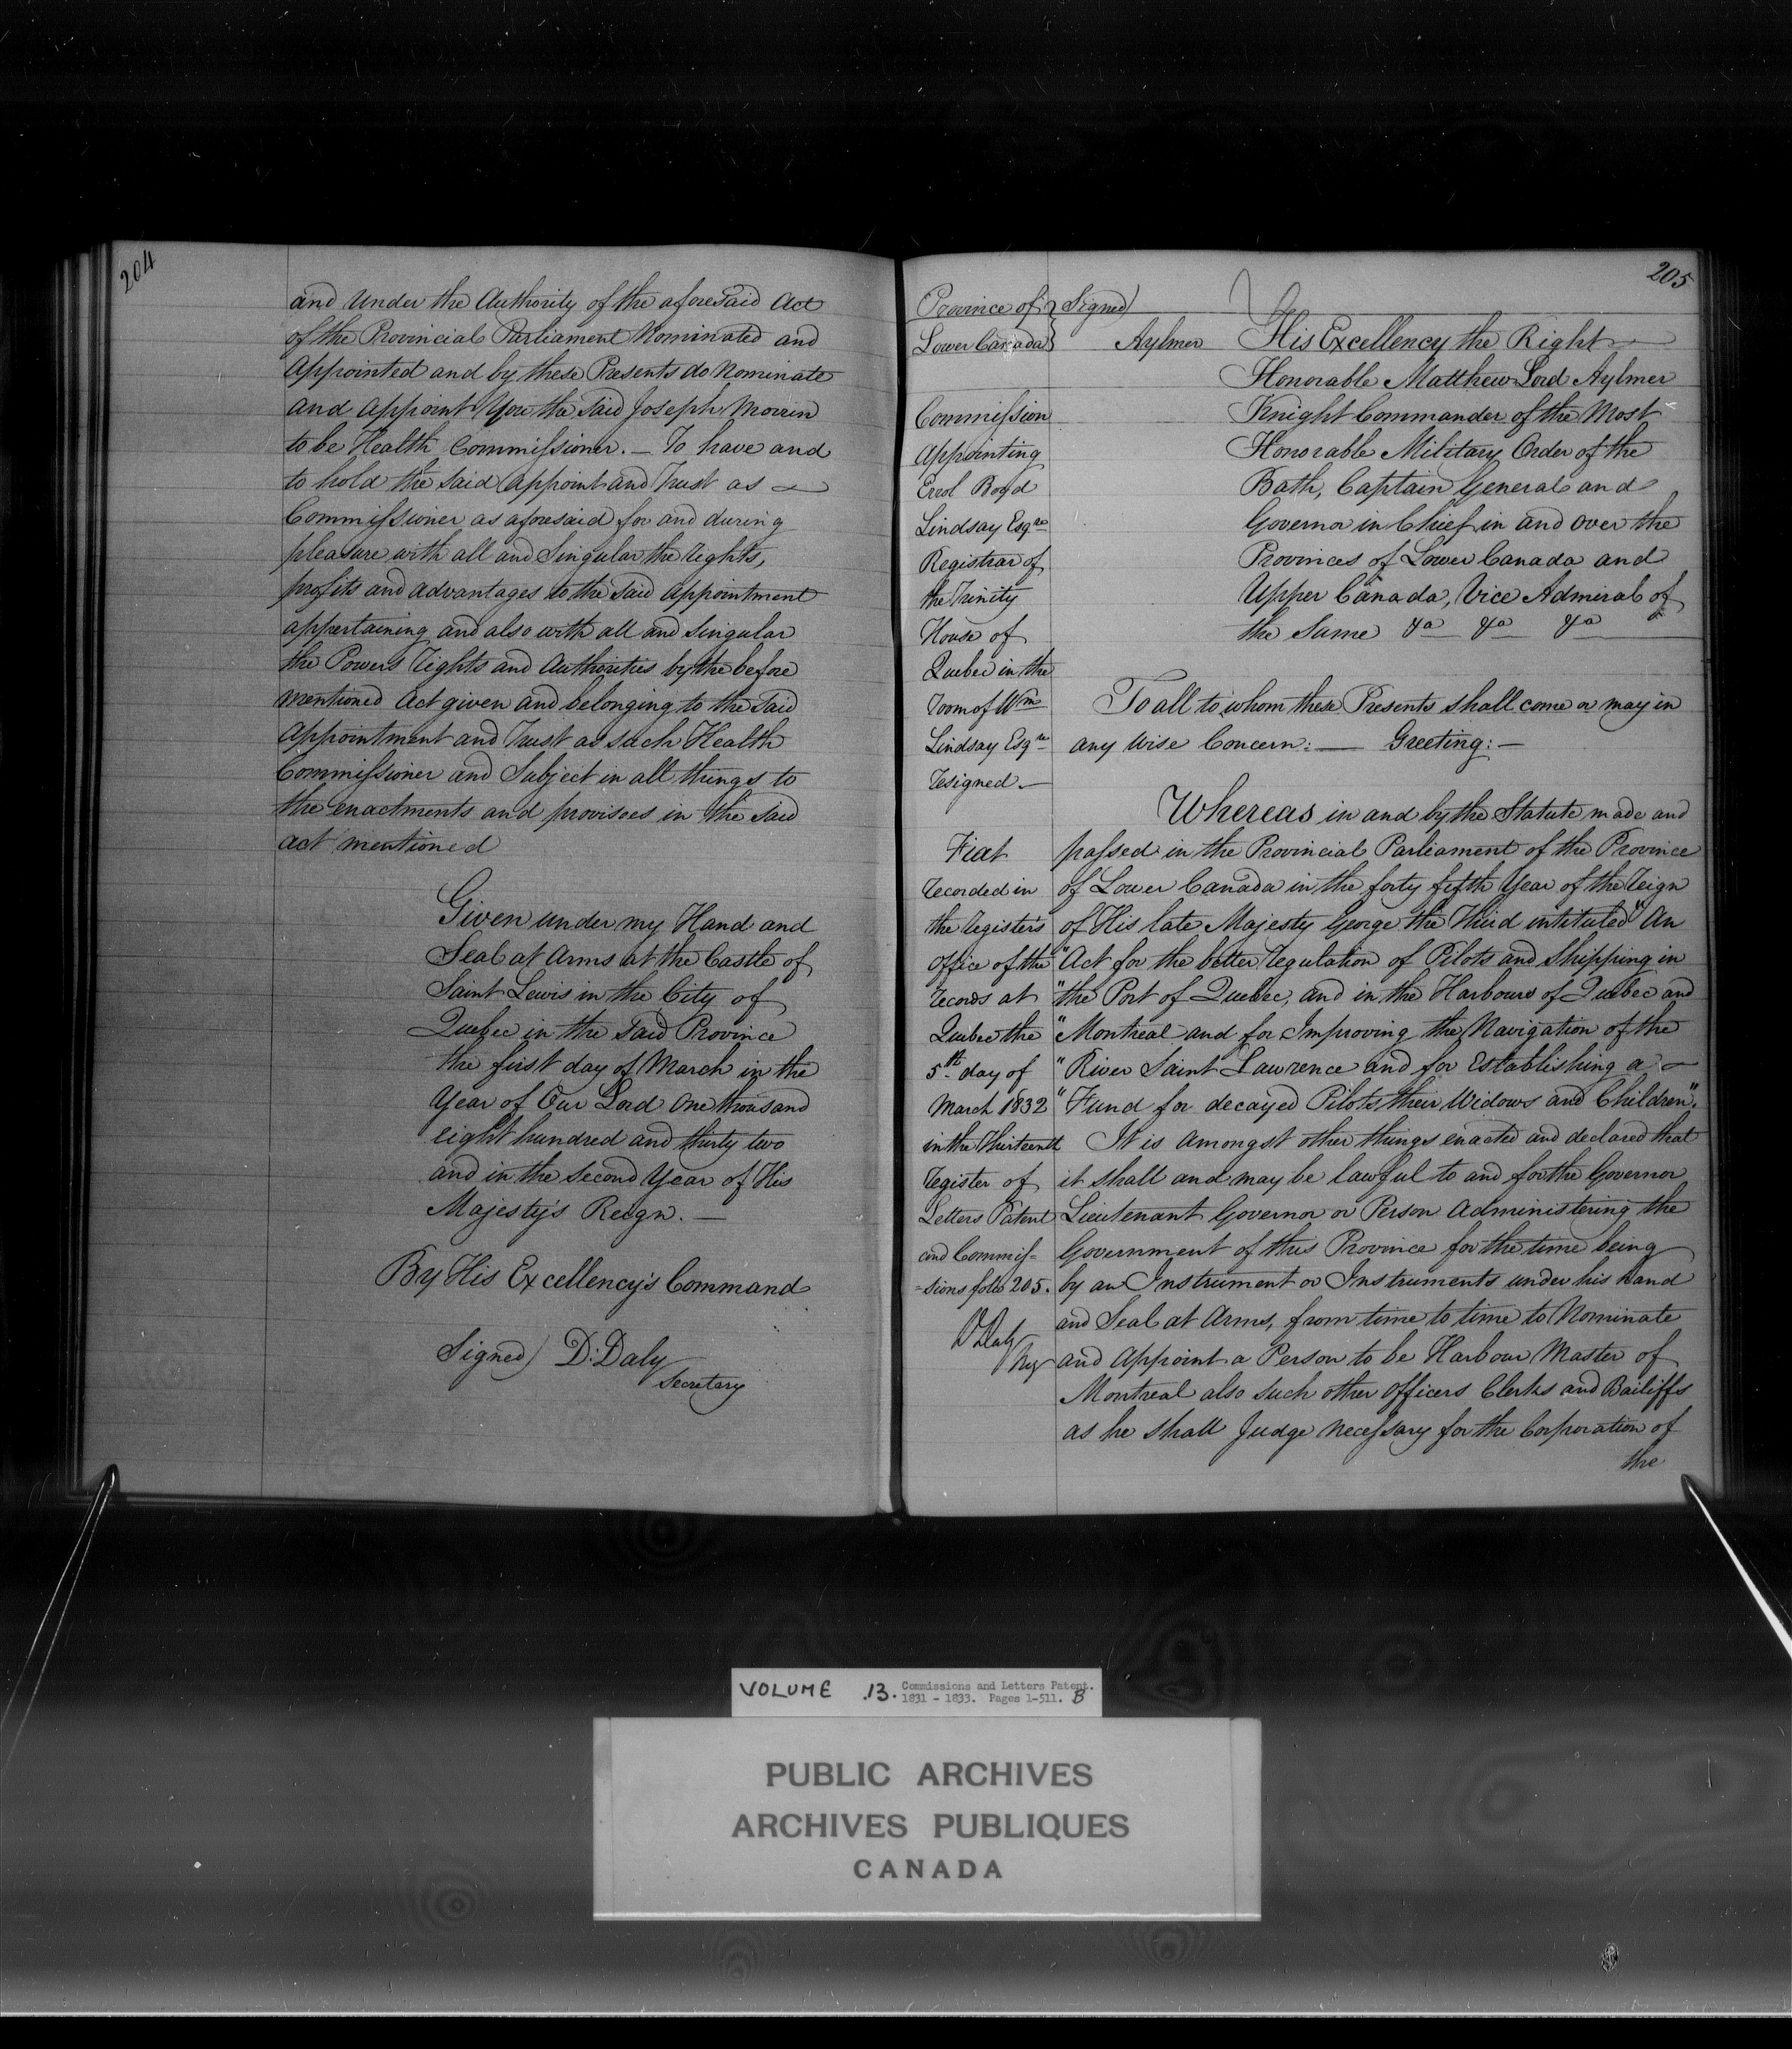 204
and Under the Authority of the aforesaid Act
of the Provincial Parliament Nominated and
Appointed and by these Presents do Nominate
and Appoint You the said Joseph Morrin
to be Health Commissioner. — To have and
to hold the said Appoint and Trust as —
Commissioner as aforesaid for and during
pleasure with all and Singular the rights,
profits and advantages to the said Appointment
appertaining and also with all and singular
the Powers Rights and Authorities by the before
mentioned Act given and belonging to the said
Appointment and Trust as such Health
Commissioner and Subject in all things to
the enactments and provisoes in the said
act mentioned
Given under my Hand and
Seal at Arms at the Castle of
Saint Lewis in the City of
Quebec in the said Province
the first day of March in the
Year of Our Lord One thousand
eight hundred and thirty two
and in the Second Year of His
Majesty's Reign. —
By His Excellency's Command
Signed) D. Daly
Secretary
205
Province of } Signed)
Lower Canada } Aylmer
Commission
Appointing
Errol Boyd
Lindsay Esqre
Registrar of
the Trinity
House of
Quebec in the
room of Wm
Lindsay Esqre
resigned. —
Fiat
recorded in
the registers
office of the
records at
Quebec the
5th day of
March 1832
in the thirteenth
register of
Letters Patent
and Commis=
=sions folio 205.
D Daly
Reg
His Excellency the Right —
Honorable Matthew Lord Aylmer
Knight Commander of the Most
Honorable Military Order of the
Bath, Captain General and
Governor in Chief in and over the
Provinces of Lower Canada and
Upper Canada, Vice Admiral of
the Same &a &a &a
To all to whom these Presents shall come or may in
any wise Concern: — Greeting: —
Whereas in and by the Statute made and
passed in the Provincial Parliament of the Province
of Lower Canada in the forty fifth Year of the reign
of His late Majesty George the Third intituled "An
"Act for the better regulation of Pilots and Shipping in
"the Port of Quebec, and in the Harbours of Quebec and
"Montreal and for Improving the Navigation of the
"River Saint Lawrence and for Establishing a —
"Fund for decayed Pilots their Widows and Children".
It is Amongst other things enacted and declared that
it shall and may be lawful to and for the Governor
Lieutenant Governor or Person Administering the
Government of this Province for the time being
by an Instrument or Instruments under his hand
and Seal at Arms, from time to time to Nominate
and Appoint a Person to be Harbour Master of
Montreal also such other Officers Clerks and Bailiffs
as he shall Judge necessary for the Corporation of
the
VOLUME 13. Commissions and Letters Patent.
1831 - 1833. Pages 1-511. B
PUBLIC ARCHIVES
ARCHIVES PUBLIQUES
CANADA